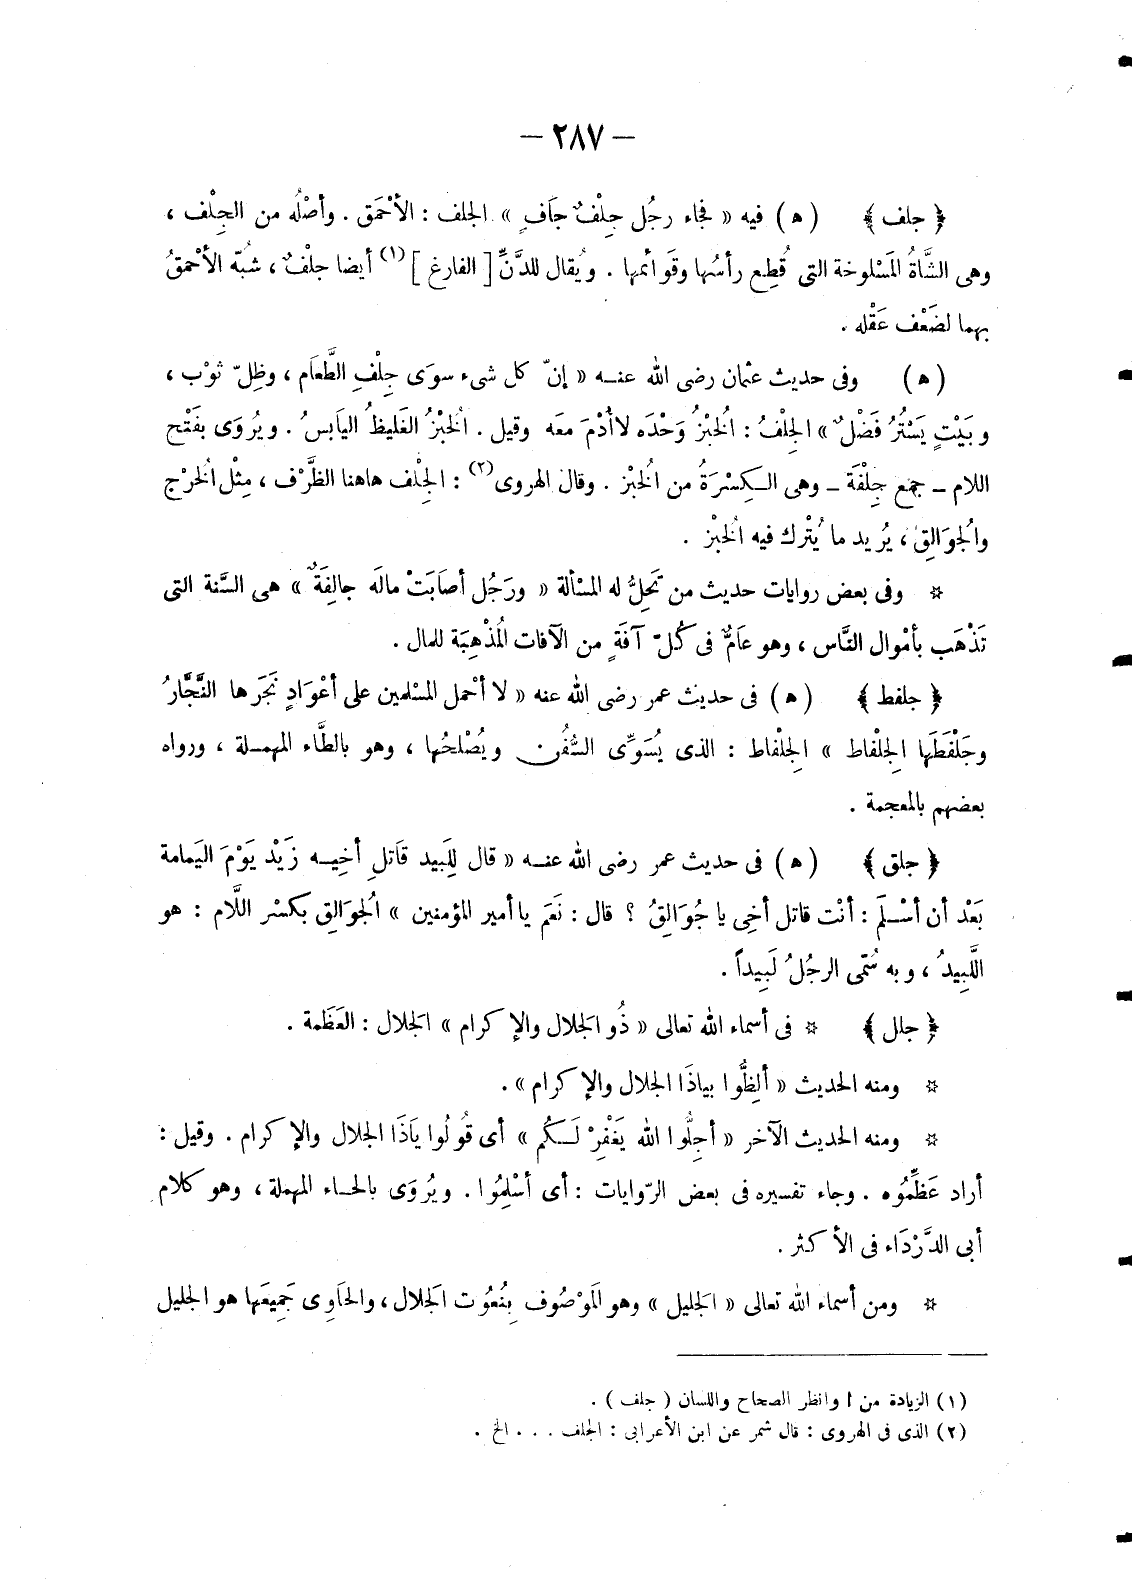 — ٢٨٧ —
﴿ جلف ﴾ ( ه ) فيه « فجاء رجُل جِلْفٌ جاَفٍ » الجلف : الأحْمَق . وأصْلُه من الجِلْف ،
وهى الشَّاةُ المَسْلوخة التى قُطِع رأسُها وقَوائمها . ويُقال للدَّنِّ [ الفارغ ] (١) أيضا جلْفٌ ، شُبّه الأحْمقُ
بهما لضَعْف عَقْله .
( ه ) وفى حديث عثمان رضى الله عنـه « إنّ كل شىء سوَى جِلْفِ الطَّعاَم ، وظِلّ ثوْب ،
وبَيْتٍ يَسْتُرُ فَضْلٌ » الجِلْفُ : الُخبْزُ وَحْدَه لاأُدْمَ معَه وقيل . الُخبْزُ الغَليظُ اليَابسُ . ويُروَى بفَتْح
اللام ــ جمْع جِلْفَة ــ وهى الـكِسْرَةُ من الُخبْز . وقال الهروى (٢) : الجْلف هاهنا الظَّرْف ، مِثْل الُخرْج
والُجوَالِق ، يُريد ما يُتْرك فيه الُخبْز .
* وفى بعض روايات حديث من تَحِلُّ له المسْألة « ورَجُل أصاَبَتْ مالَه جالِفَةٌ » هى السَّنة التى
تَذْهَب بأمْوال النَّاس ، وهو عاَمٌّ فى كُلّ آفَةٍ من الآفات المُذْهِبَة للمال .
﴿ جلفط ﴾ ( ه ) فى حديث عمر رضى الله عنه « لا أحْمل المسْلمين على أعْوَادٍ نَجَرَها النَّجَّارُ
وجَلْفَطَها الِجلْفاط » الِجلْفاط : الذى يُسَوِّى السُّفُن ويُصْلحُها ، وهو بالطَّاء المهمـلة ، ورواه
بعضهم بالمعجمة .
﴿ جلق ﴾ ( ه ) فى حديث عمر رضى الله عنـه « قال لِلَبيد قاَتل أخِيـه زَيْد يَوْمَ اليَمامة
بَعْد أن أسْـلَمَ : أنْت قاتل أخِى يا جُوَالِقُ ؟ قال : نَعَم يا أمير المؤمنين » الُجوَالِق بكَسْر اللَّام : هو
اللَّبِيدُ ، وبه سُمّى الرجُلُ لَبِيداً .
﴿ جلل ﴾ * فى أسماء الله تعالى « ذُو الَجلال والإكرام » الَجلال : العَظَمة .
* ومنه الحديث « ألِظُّوا بياذَا الجلال والإكرام » .
* ومنه الحديث الآخر « أجِلُّوا الله يَغْفِرْ لَـكُم » أى قُولُوا يَاذَا الجلال والإكرام . وقيل :
أراد عَظِّمُوه . وجاء تفسيره فى بعض الرّوايات : أى أسْلِمُوا . ويُروَى بالحـاء المهملة ، وهو كلام
أبى الدَّرْدَاء فى الأكثر .
* ومن أسماء الله تعالى « الَجليل » وهو المَوْصُوف بِنُعُوت الَجلال ، والحَاوِى جَمِيعَها هو الجليل
(١) الزيادة من ا وانظر الصحاح واللسان ( جلف ) .
(٢) الذى فى الهروى : قال شمر عن ابن الأعرابى : الجلف . . . الخ .